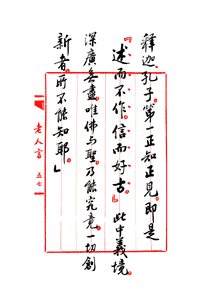 釋迦、孔子第一正知正見,即是
『述而不作,信而好古。』此中義境
深廣無盡,唯佛與聖乃能究竟。一切創
新者所不能知耶」
老人言 五七